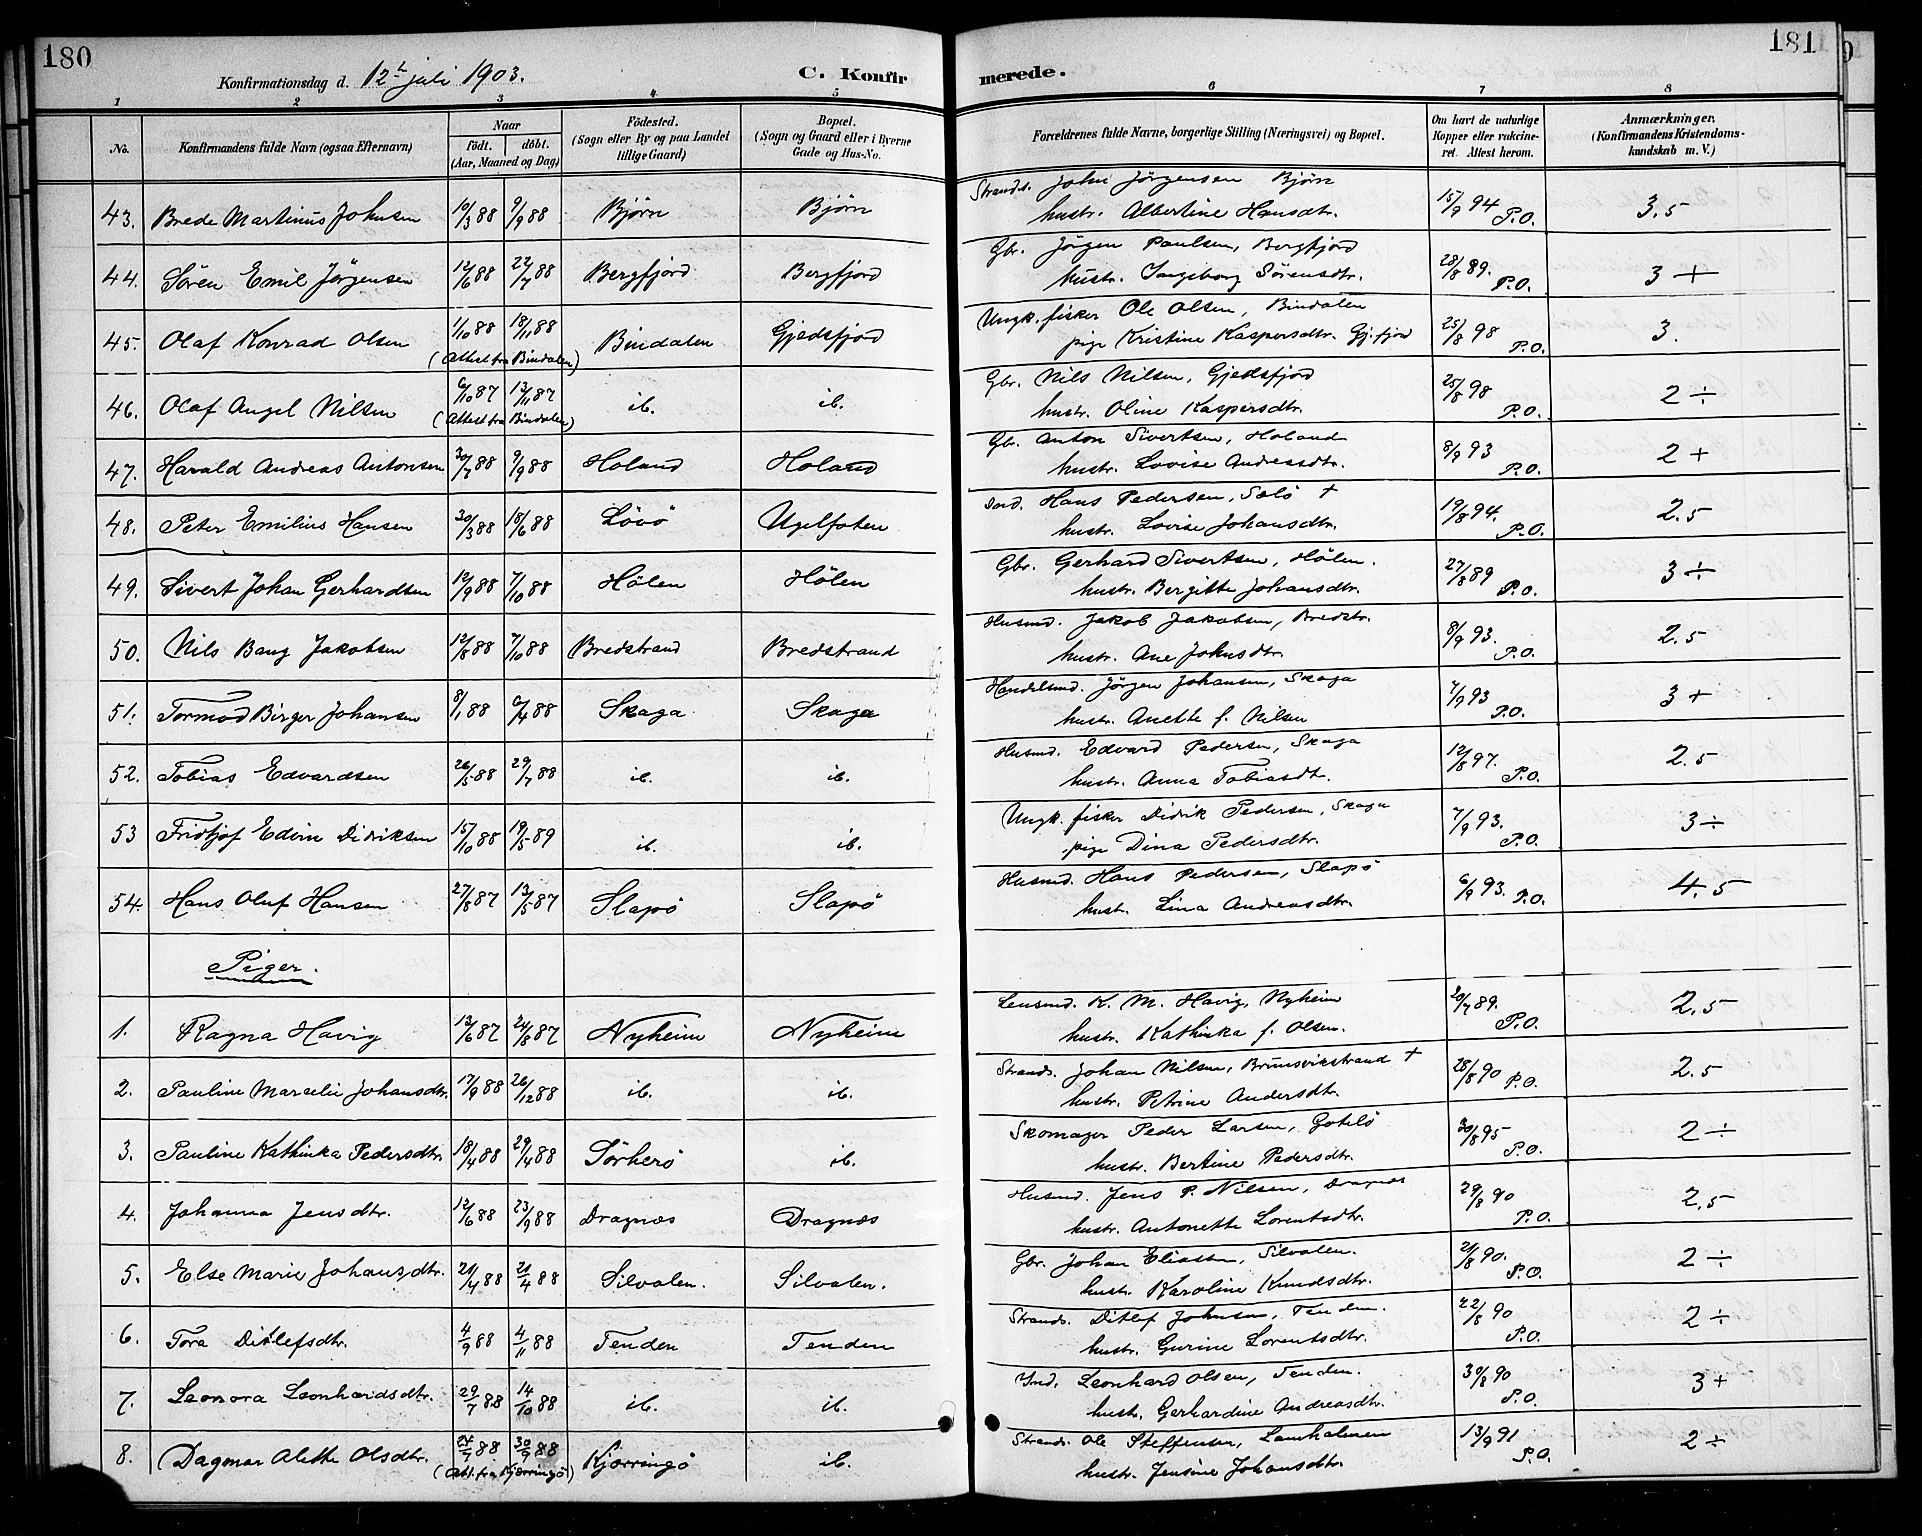 180
181
Konfirmationsdag d. 12t juli 1903.
C. Konfirmerede.
1 2 3 4 5 6 7 8
No.
Konfirmandens fulde Navn (ogsaa Efternavn)
Naar
födt. döbt.
(Aar, Maaned og Dag)
Födested.
(Sogn eller By og paa Landet
tillige Gaard)
Bopæl.
(Sogn og Gaard eller i Byerne
Gade og Hus-No.
Forældrenes fulde Navne, borgerlige Stilling (Næringsvei) og Bopæl.
Om havt de naturlige
Kopper eller vakcine-
ret. Attest herom.
Anmærkninger.
(Konfirmandens Kristendoms-
kundskab m. V.)
43. Brede Martinus Johnsen 10/3 88 9/9 88 Bjørn Bjørn Strands. John Jörgensen Bjørn
hustr. Albertine Hansdtr. 15/9 94 P.O. 3,5
44. Sören Emil Jörgensen 12/6 88 22/7 88 Bergfjord Bergfjord Gbr. Jörgen Paulsen, Bergfjord
hustr. Ingeborg Sörensdtr. 28/8 89. P.O. 3 +
45. Olaf Konrad Olsen 1/10 88 18/11 88 Bindalen Gjedsfjord Ungk. fisker Ole Olsen, Bindalen
(Attest fra Bindalen) pige Kristine Kaspersdtr. Gj.fjord 25/8 98 P.O. 3.
46. Olaf Angel Nilsen 6/10 87 13/11 87 ib. ib. Gbr. Nils Nilsen, Gjedsfjord
(Attest fra Bindalen) hustr. Oline Kaspersdtr. 25/8 98 P.O. 2 ÷
47. Harald Andreas Antonsen 30/7 88 9/9 88 Holand Holand Gbr. Anton Sivertsen, Holand
hustr. Lovise Andreasdtr. 8/9 93 P.O. 2 +
48. Peter Emilius Hansen 30/3 88 18/6 88 Lövö Ugelfoten Ind. Hans Pedersen, Solö +
hustr. Lovise Johansdtr. 19/8 94. P.O. 2.5
49. Sivert Johan Gerhardsen 12/9 88 7/10 88 Hölen Hölen Gbr. Gerhard Sivertsen, Hölen.
hustr. Bergitte Johansdtr. 27/8 89 P.O. 3 ÷
50. Nils Bang Jakobsen 12/8 88 7/10 88 Bredstrand Bredstrand Husmd. Jakob Jakobsen, Bredstr.
hustr. Ane Johnsdtr. 8/9 93. P.O. 2.5
51. Tormod Birger Johansen 8/1 88 /4 88 Skaga Skaga Handelsmd. Jörgen Johansen, Skaga
hustr. Anette f. Nilsen 7/9 93 P.O. 3 +
52. Tobias Edvardsen 26/5 88 29/7 88 ib. ib. Husmd. Edvard Pedersen, Skaga
hustr. Anna Tobiasdt. 12/8 97. P.O. 2.5
53 Fridtjof Edvin Didriksen 15/10 88 19/5 89 ib. ib. Ungk. fisker Didrik Pedersen, Skaga
pige Dina Pedersdtr. 7/9 93. P.O. 3 ÷
54. Hans Oluf Hansen 27/8 87 13/5 87 Slapö Slapö Husmd. Hans Pedersen, Slapö
hustr. Lina Andreasdtr. 6/9 93. P.O. 4.5
Piger.
1. Ragna Havig 13/6 87 24/8 87 Nyheim Nyheim Lensmd. K. M. Havig, Nyheim
hustr. Kathinka f. Olsen. 20/7 89. P.O. 2.5
2. Pauline Marselie Johansdtr. 17/9 88 26/12 88 ib. ib. Strands. Johan Nilsen, Brunsvikstrand +
hustr. Petrine Andersdtr. 28/8 90 P.O. 2.5
3. Pauline Kathinka Pedersdtr. 18/4 88 29/4 88 Sörherö ib. Skomager Peder Larsen, Gotelö
hustr. Bertine Pedersdtr. 30/8 95 P.O. 2 ÷
4. Johanna Jensdtr. 12/6 88 23/9 88 Dragnæs Dragnæs Husmd. Jens P. Nilsen, Dragnæs
hustr. Antonette Lorentsdtr. 29/8 90 P.O. 2.5
5. Else Marie Johansdtr. 21/4 88 21/4 88 Silvalen. Silvalen. Gbr. Johan Eliassen, Silvalen.
hustr. Karoline Knudsdtr. 21/8 90. P.O. 2 ÷
6. Tora Ditlefsdtr. 4/9 88 4/11 88 Tenden Tenden Strands. Ditlef Johnsen, Tenden.
hustr. Gurine Lorentsdtr. 22/8 90 P.O. 2 ÷
7. Leonora Leonhardsdtr. 29/7 88 14/10 88 ib. ib. Ind. Leonhard Olsen, Tenden.
hustr. Gerhardine Andreasdtr. 30/8 90 P.O. 3 +
8. Dagmar Alette Olsdtr. 24/7 88 30/9 88 Kjærringö ib. Strands. Ole Steffensen,
(Att. fra Kjærringö) hustr. Jensine Johansdtr. 13/9 91 P.O. 2 ÷